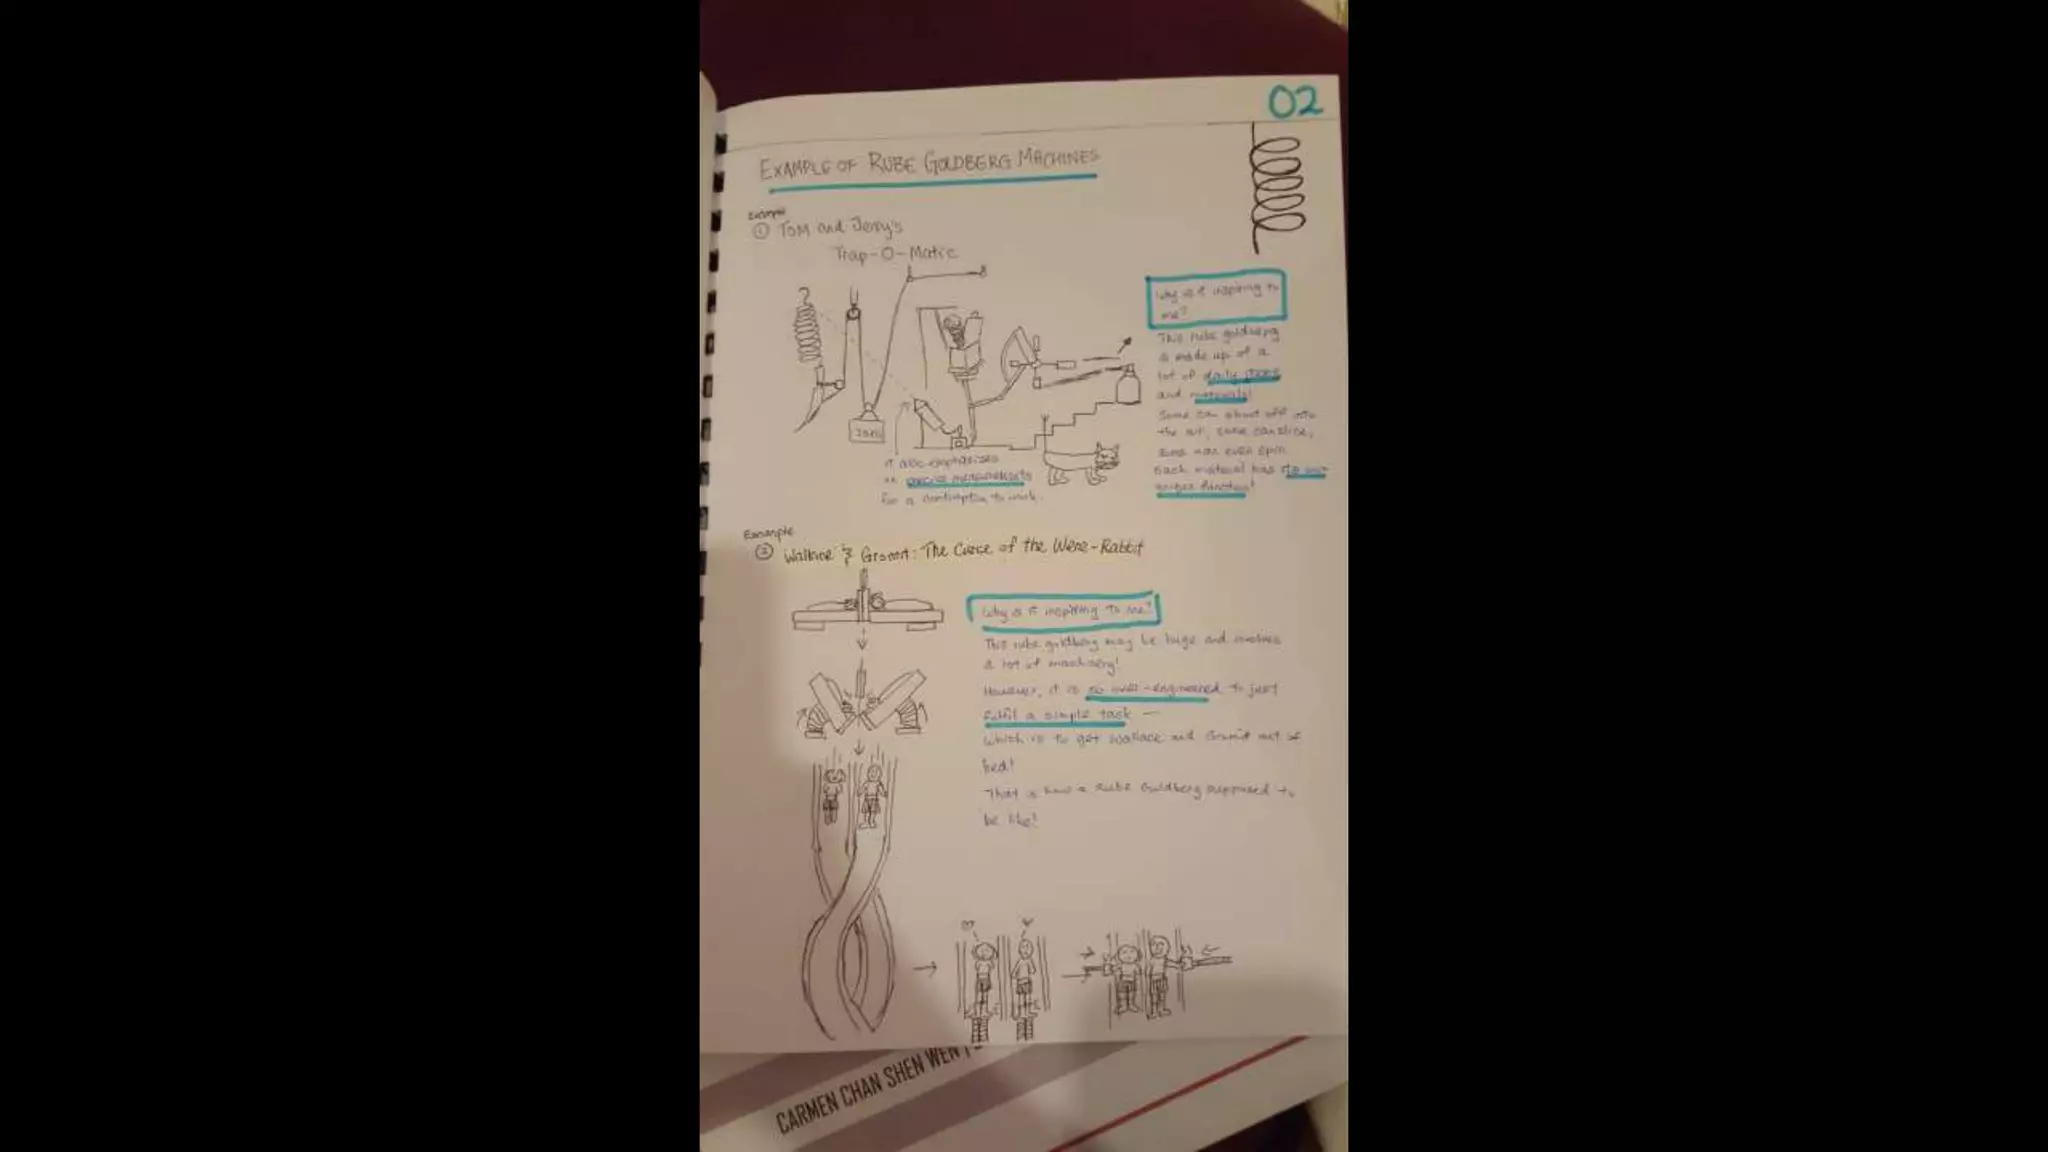 02
EXAMPLE OF RUBE GOLDBERG MACHINES
Example
① Tom and Jerry's
Trap-O-Matic
Why is it inspiring to
me?
This rube goldberg
is made up of a
lot of daily items
and materials!
Some can shoot off into
the air, some can slice,
some can even spin.
Each material has its own
unique function!
It also emphasizes
on precise measurements
for a contraption to work.
Example
② Wallace & Gromit: The Curse of the Were-Rabbit
Why is it inspiring to me?
This rube goldberg may be huge and involves
a lot of machinery!
However, it is so over-engineered to just
fulfil a simple task —
which is to get Wallace and Gromit out of
bed!
That is how a Rube Goldberg supposed to
be like!
CARMEN CHAN SHEN WEN |